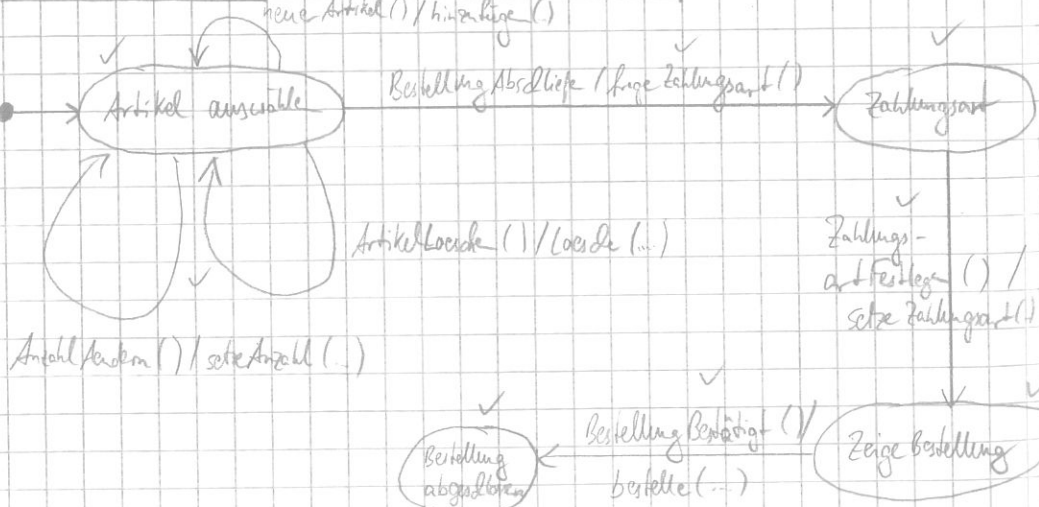 neue Artikel () / hinzufüge (.)
Artikel auswähle
Bestellung Abschließe / frage Zahlungsart ()
Zahlungsart
ArtikelLoesche () / Loesche (...)
Zahlungs-
artFestlegen () /
setze Zahlungsart ()
AnzahlAendern () / setzeAnzahl (...)
Bestellung Bestätigt () /
bestelle (...)
Bestellung
abgeschlossen
Zeige Bestellung